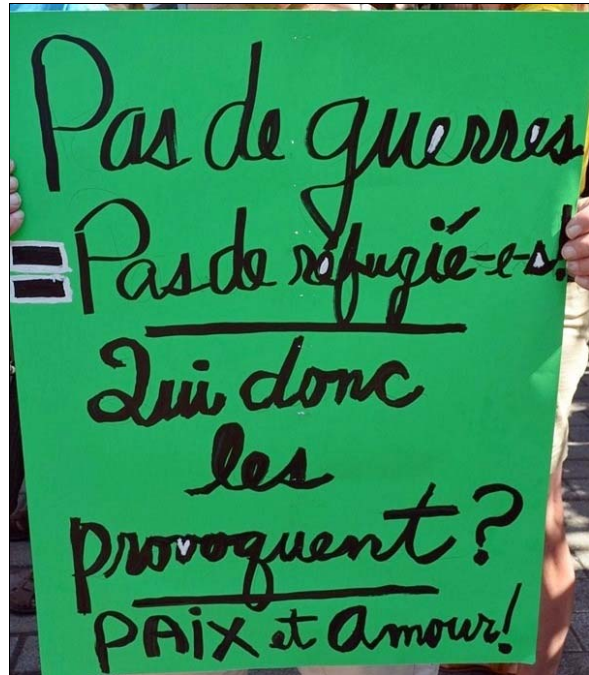 Pas de guerres
= Pas de réfugié-e-s!
Qui donc
les
provoquent?
PAiX et Amour!